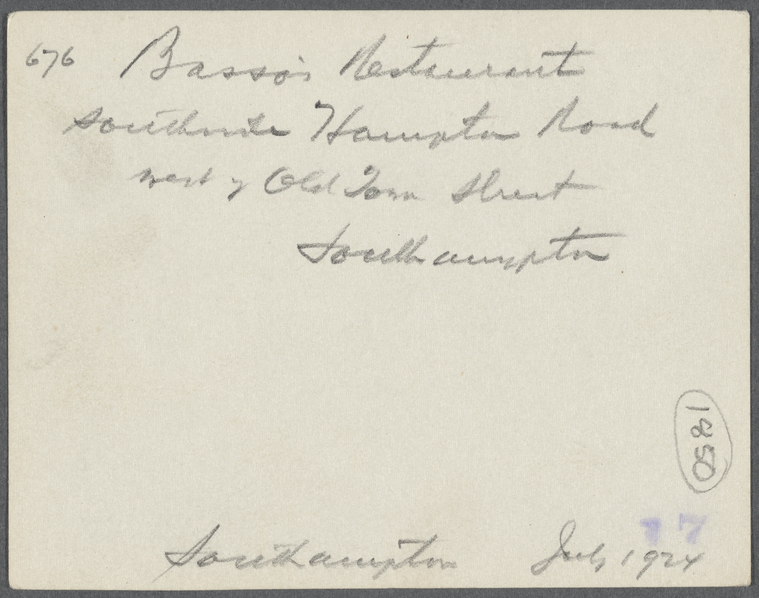 676 Basso's Restaurant
Southside Hampton Road
west of Old Town Street
Southampton
1850
17
Southampton July 1924